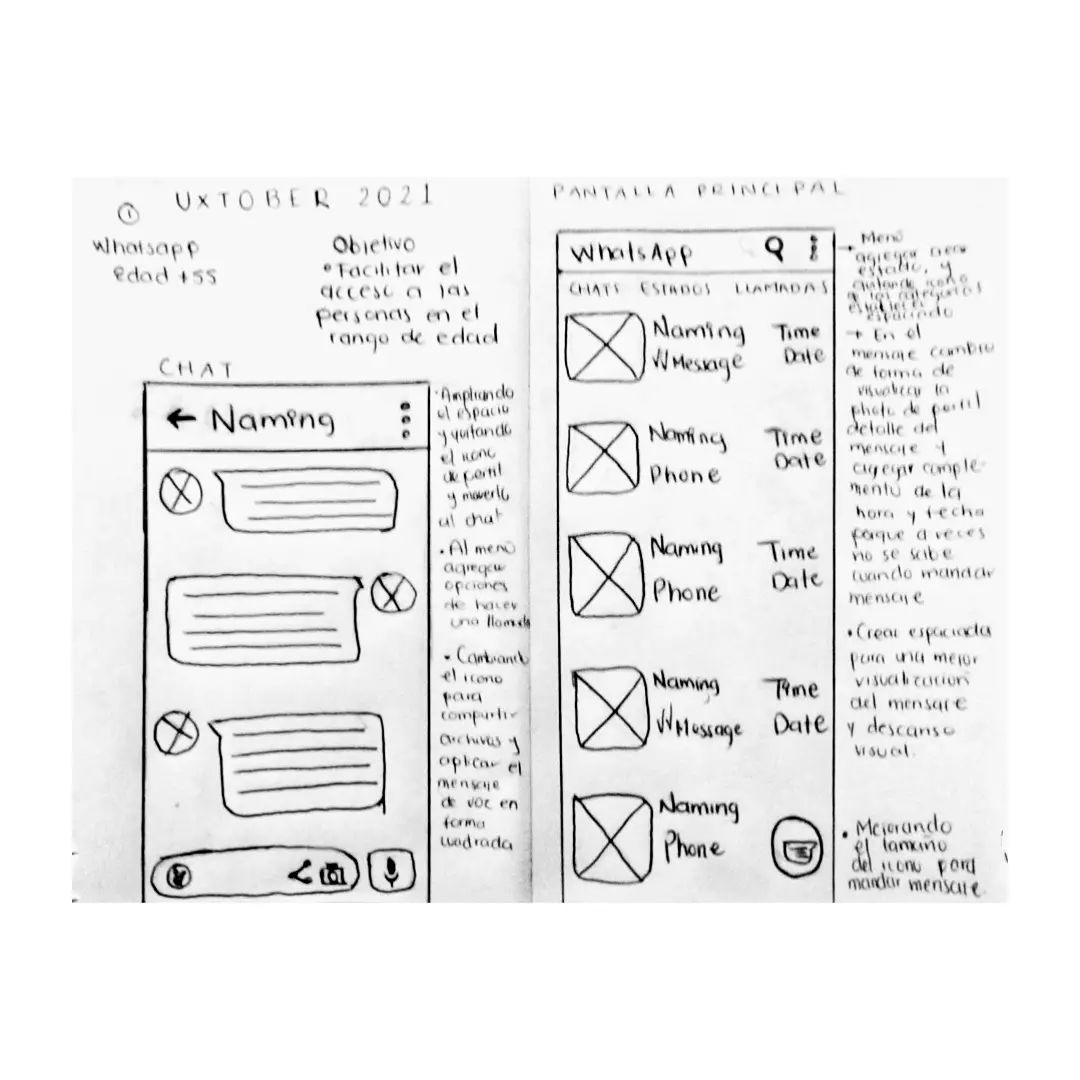 ①
UXTOBER 2021
Whatsapp
Edad +55
Objetivo
• Facilitar el
acceso a las
personas en el
rango de edad
CHAT
← Naming
• Ampliando
el espacio
y quitando
el icono
de perfil
y moverlo
al chat
• Al menú
agregar
opciones
de hacer
una llamada
• Cambiando
el icono
para
compartir
archivos y
aplicar el
mensaje
de voz en
forma
cuadrada
PANTALLA PRINCIPAL
WhatsApp
CHATS ESTADOS LLAMADAS
Naming Time
√√ Message Date
Naming Time
Phone Date
Naming Time
Phone Date
Naming Time
√√ Message Date
Naming
Phone
→ Menú
agregar
estado, y
quitando icono
a las categorías
espaciado
→ En el
mensaje cambio
de forma de
visualizar la
photo de perfil
detalle del
mensaje y
agregar comple-
mento de la
hora y fecha
porque a veces
no se sabe
cuando mandar
mensaje
• Crear espaciado
para una mejor
visualización
del mensaje
y descanso
visual.
• Mejorando
el tamaño
del icono para
mandar mensaje